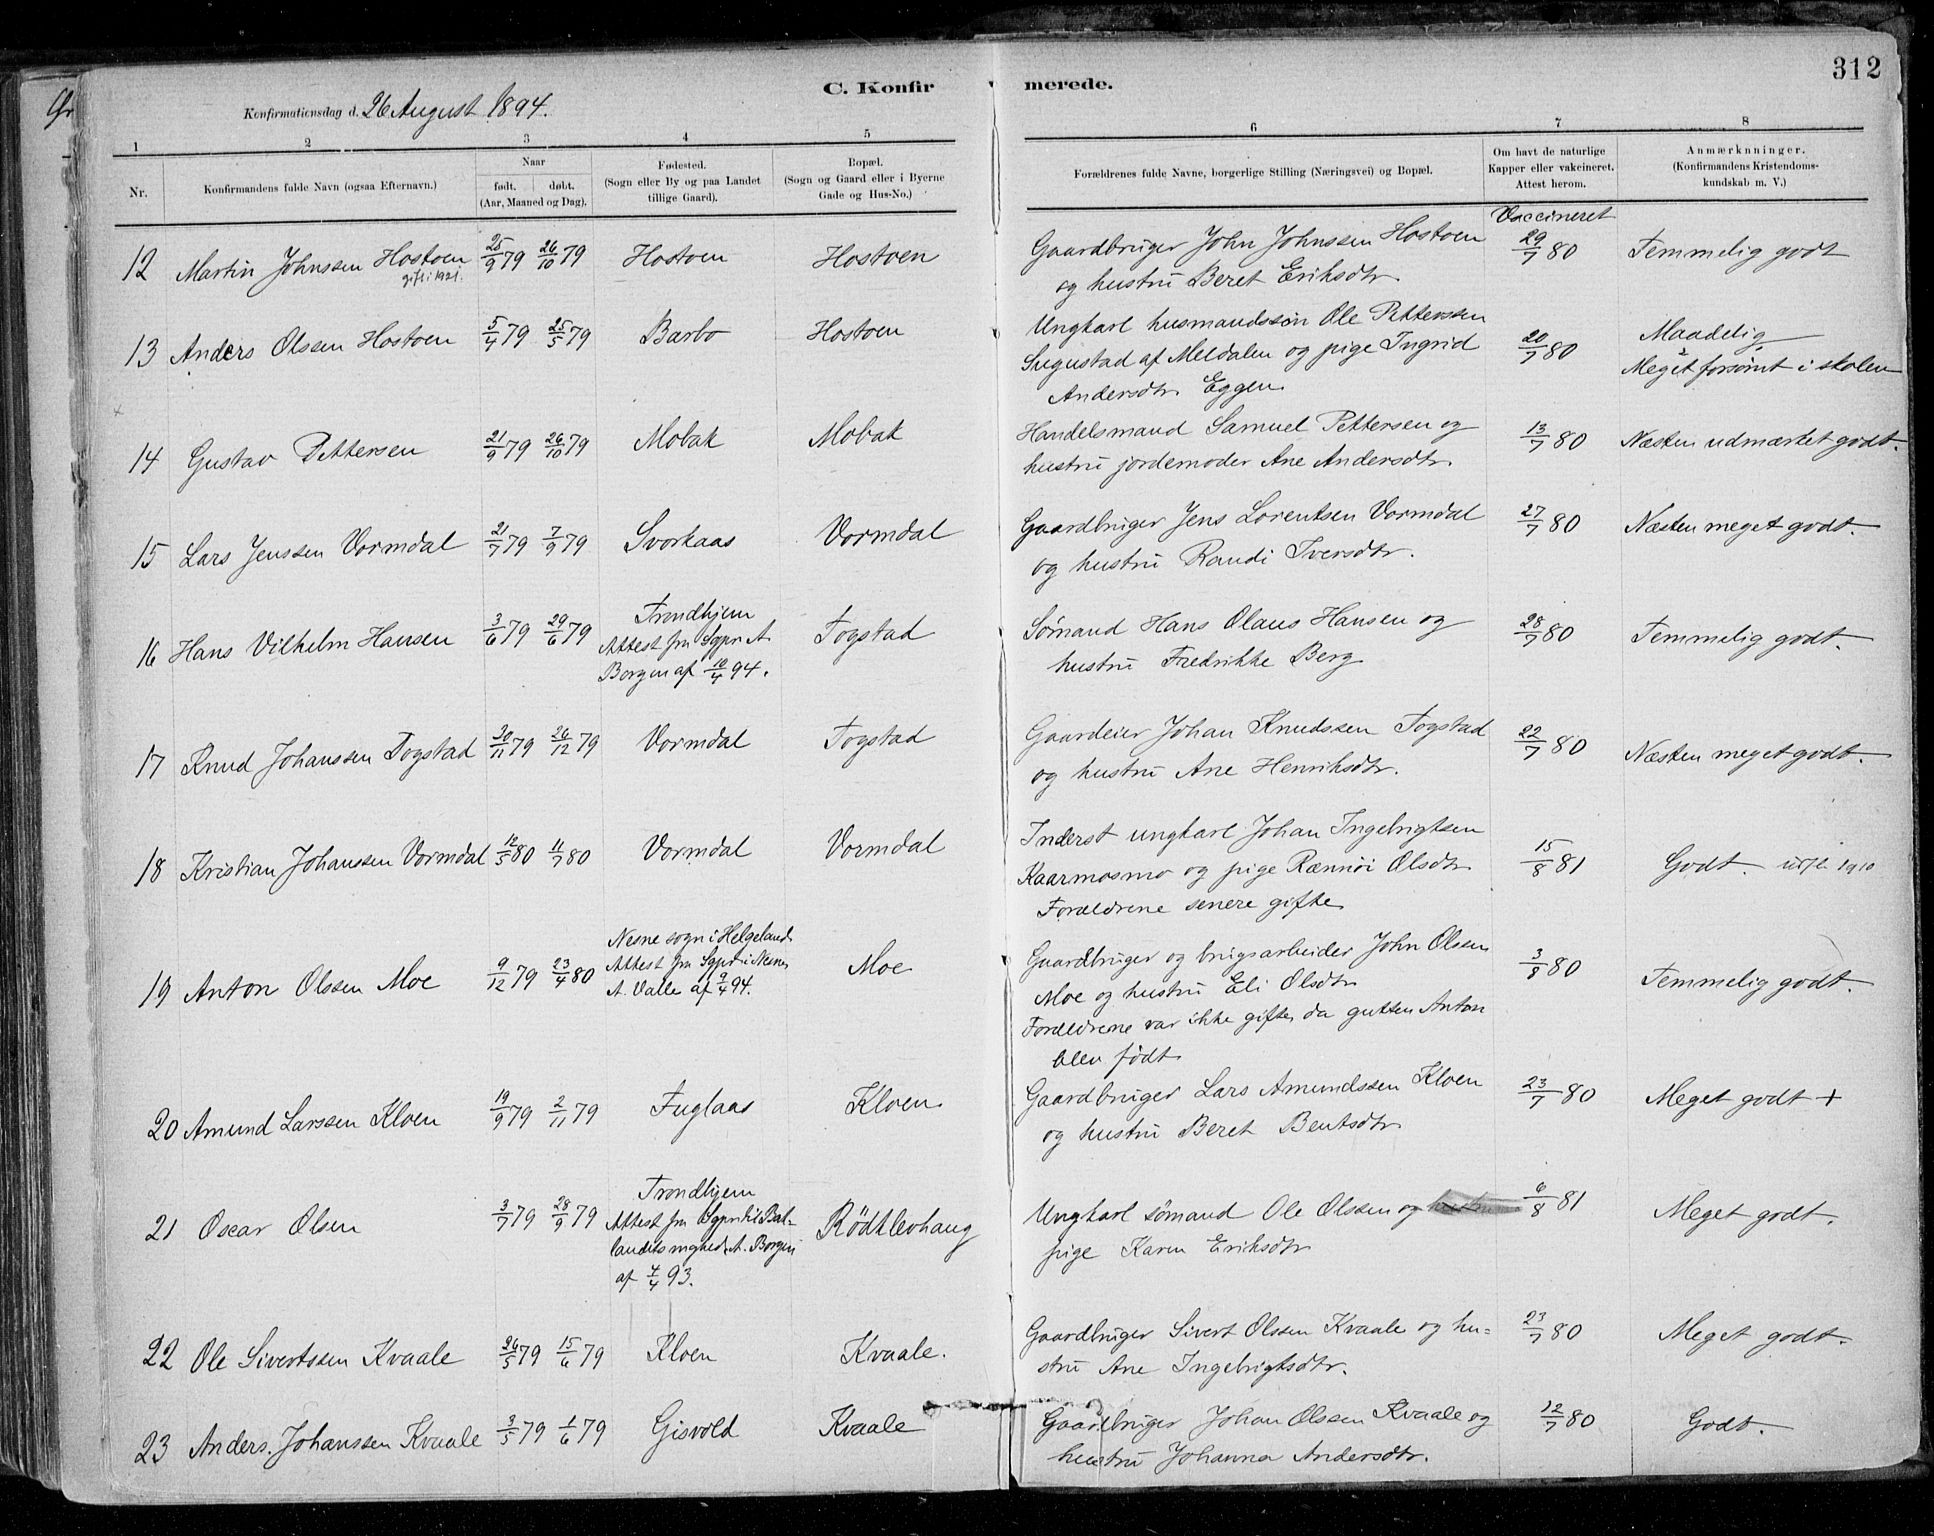 312
C. Konfirmerede.
Konfirmationsdag d. 26 August 1894.
1 2 3 4 5 6 7 8
Nr.
Konfirmandens fulde Navn (ogsaa Efternavn.)
Naar
født. døbt.
(Aar, Maaned og Dag).
Fødested.
(Sogn eller By og paa Landet
tillige Gaard).
Bopæl.
(Sogn og Gaard eller i Byerne
Gade og Hus-No.)
Forældrenes fulde Navne, borgerlige Stilling (Næringsvei) og Bopæl.
Om havt de naturlige
Kopper eller vakcineret.
Attest herom.
Anmærkninger.
(Konfirmandens Kristendoms-
kundskab m. V.)
Vaccineret
12 Martin Johnssen Hostoen 25/9 79 26/10 79 Hostoen Hostoen Gaardbruger John Johnssen Hostoen 29/7 80 Temmelig godt
gift i 1921.
og hustru Beret Eriksdtr.
13 Anders Olssen Hostoen 5/4 79 25/5 79 Barbo Hostoen Ungkarl husmandssøn Ole Pettersen 20/7 80 Maadelig
af Meldalen og pige Ingrid Meget forsømt i skolen
Andersdtr. Eggen
14 Gustav Pettersen 21/9 79 26/10 79 Mobak Mobak Handelsmand Samuel Pettersen og 13/7 80 Næsten udmærket godt.
hustru jordemoder Ane Andersdtr.
15 Lars Jenssen Vormdal 21/7 79 7/9 79 Svorkaas Vormdal Gaardbruger Jens Lorentsen Vormdal 27/7 80 Næsten meget godt.
og hustru Randi Iversdtr.
16 Hans Vilhelm Hansen 3/6 79 29/6 79 Trondhjem Togstad Sømand Hans Olaus Hansen og 28/7 80 Temmelig godt.
Attest fra Sgpr. A.
hustru Fredrikke Berg
Borgen af 10/4 94.
17 Knud Johanssen Togstad 30/11 79 26/12 79 Vormdal Togstad Gaardeier Johan Knudssen Togstad 22/7 80 Næsten meget godt.
og hustru Ane Henriksdtr.
18 Kristian Johanssen Vormdal 12/5 80 11/7 80 Vormdal Vormdal Inderst ungkarl Johan Ingebrigtsen 15/8 81 Godt. 1910
Kaarmosmo og pige Rænnøi Olsdtr.
Forældrene senere gifte
19 Anton Olssen Moe 9/12 79 23/4 80 Nesne sogn i Helgeland Moe Gaardbruger og brugsarbeider John Olssen 3/8 80 Temmelig godt.
Attest fra Sgpr. i Nesne
A. Valle af 9/4 94.
Moe og hustru Eli Olsdtr.
Forældrene var ikke gifte, da gutten Anton
blev født
20 Amund Larssen Kloen 19/9 79 2/11 79 Fuglaas Kloen Gaardbruger Lars Amundssen Kloen 23/7 80 Meget godt +
og hustru Beret Bentsdtr.
21 Oscar Olsen 3/7 79 28/9 79 Trondhjem Rødklevhaug Ungkarl sømand Ole Olssen og 6/8 81 Meget godt.
Attest fra Sgpr. til Bak-
landets mghed. A. Borgen
pige Karen Eriksdtr
af 4/4 93.
22 Ole Sivertssen Kvaale 26/5 79 15/6 79 Kloen Kvaale. Gaardbruger Sivert Olssen Kvaale og hu= 23/7 80 Meget godt.
stru Ane Ingebrigtsdtr.
23 Anders Johanssen Kvaale 3/5 79 1/6 79 Gisvold Kvaale Gaardbruger Johan Olssen Kvaale og 12/7 80 Godt.
hustru Johanna Andersdtr.